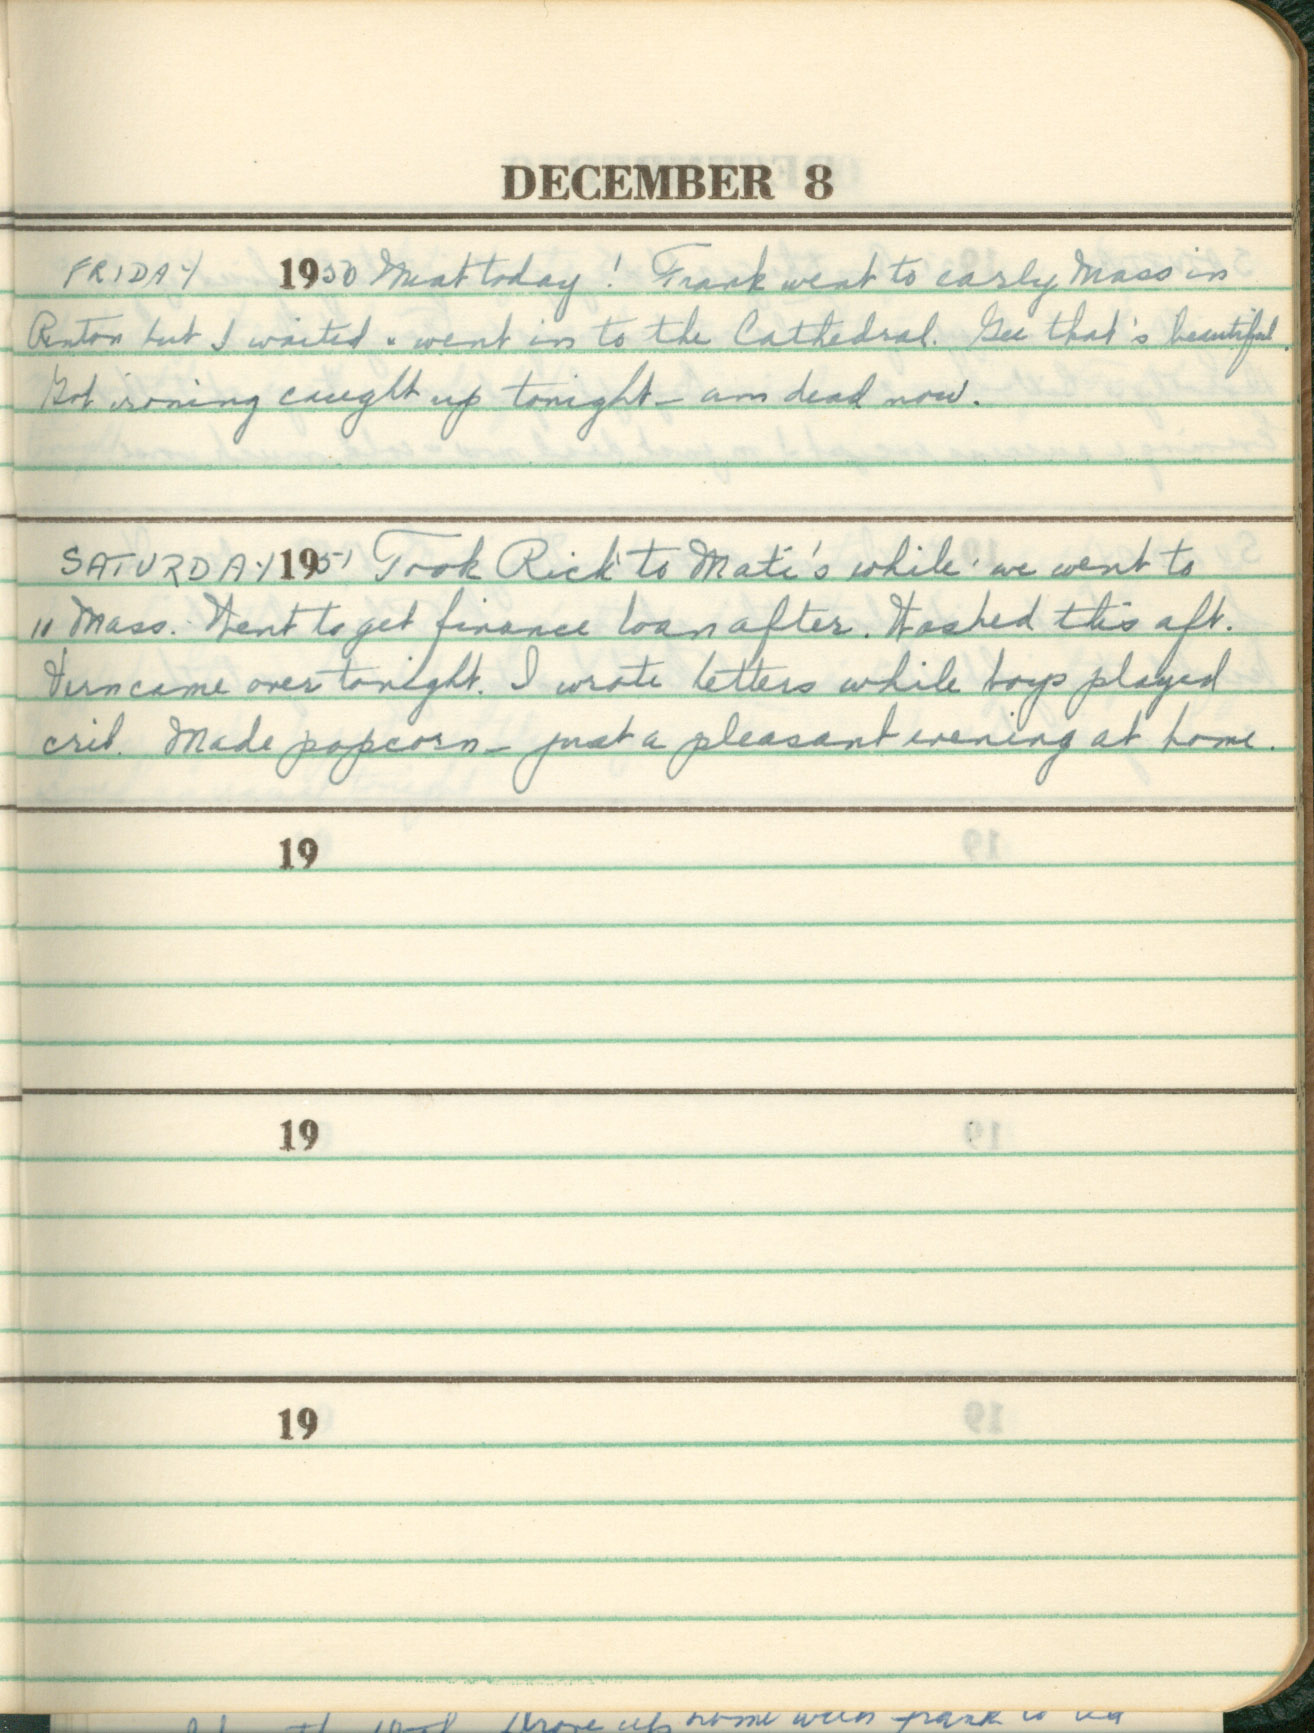 DECEMBER 8
FRIDAY 1950 Meat today! Frank went to early Mass in
Renton but I waited & went in to the Cathedral. Gee that's beautiful.
Got ironing caught up tonight – am dead now.
SATURDAY 1951 Took Rick to Mati's while we went to
11 Mass. Went to get finance loan after. Washed this aft.
Vern came over tonight. I wrote letters while boys played
crib. Made popcorn – just a pleasant evening at home.
19
19
19
home with Frank